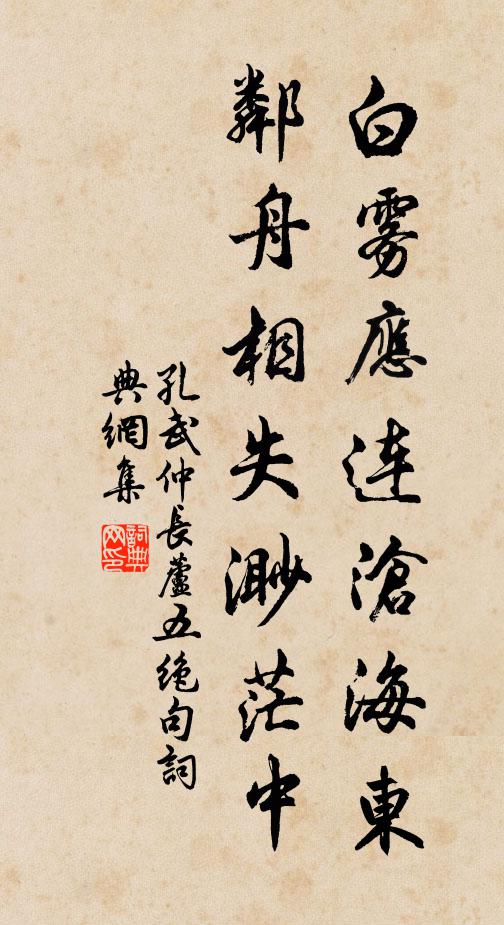 白雾應连滄海東
鄰舟相失渺茫中
孔武仲長蘆五绝句詞
典網集
詞典
网印